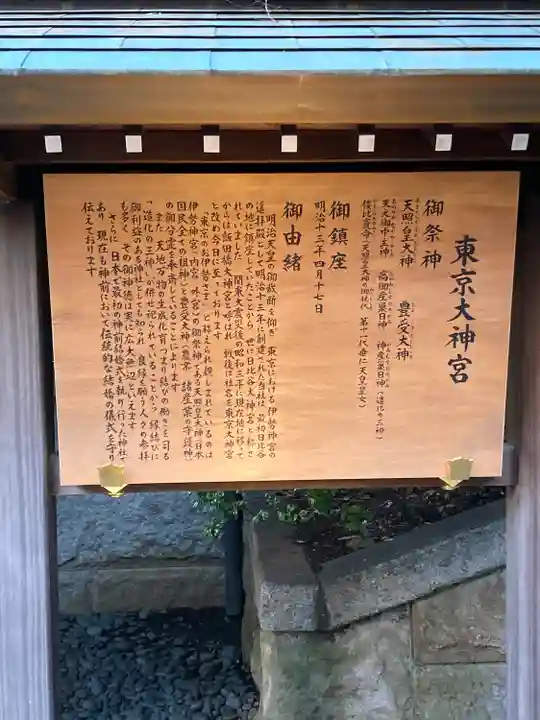 東京大神宮
御祭神
天照皇大神　豊受大神
天之御中主神　高御産巣日神　神産巣日神（造化の三神）
倭比賣命（天照皇大神の御杖代　第十一代垂仁天皇皇女）
御鎮座
明治十三年四月十七日
御由緒
明治天皇の御裁断を仰ぎ　東京における伊勢神宮の
遥拝殿として明治十三年に創建された当社は　最初日比谷
の地に鎮座していたことから　世に日比谷大神宮と称さ
れていたが　関東大震災後の昭和三年に現在地に移って
からは飯田橋大神宮と呼ばれ　戦後は社名を東京大神宮
と改め今日に至っております
「東京のお伊勢さま」と称えられ親しまれているのは
伊勢神宮の内宮・外宮の御祭神である天照皇大神（日本
国民全ての祖神）と豊受大神（農業　諸産業の守護神）
の御分霊を奉斎していることによります
また　天地万物の生成化育つまり結びの働きを司る
「造化の三神」が併せ祀られていることから　縁結びに
御利益のある神としても知られ　良縁を願う人々の参拝
も多く　その御神徳は実に広大無辺といえます
さらに　日本で最初の神前結婚式を執り行った神社で
あり　現在も神前において伝統的な結婚の儀式を守り
伝えております